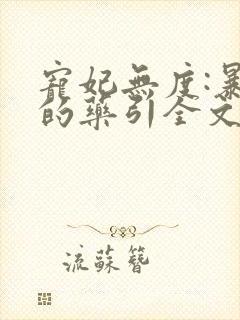 寵妃無度:暴
的藥引全文
流蘇簪